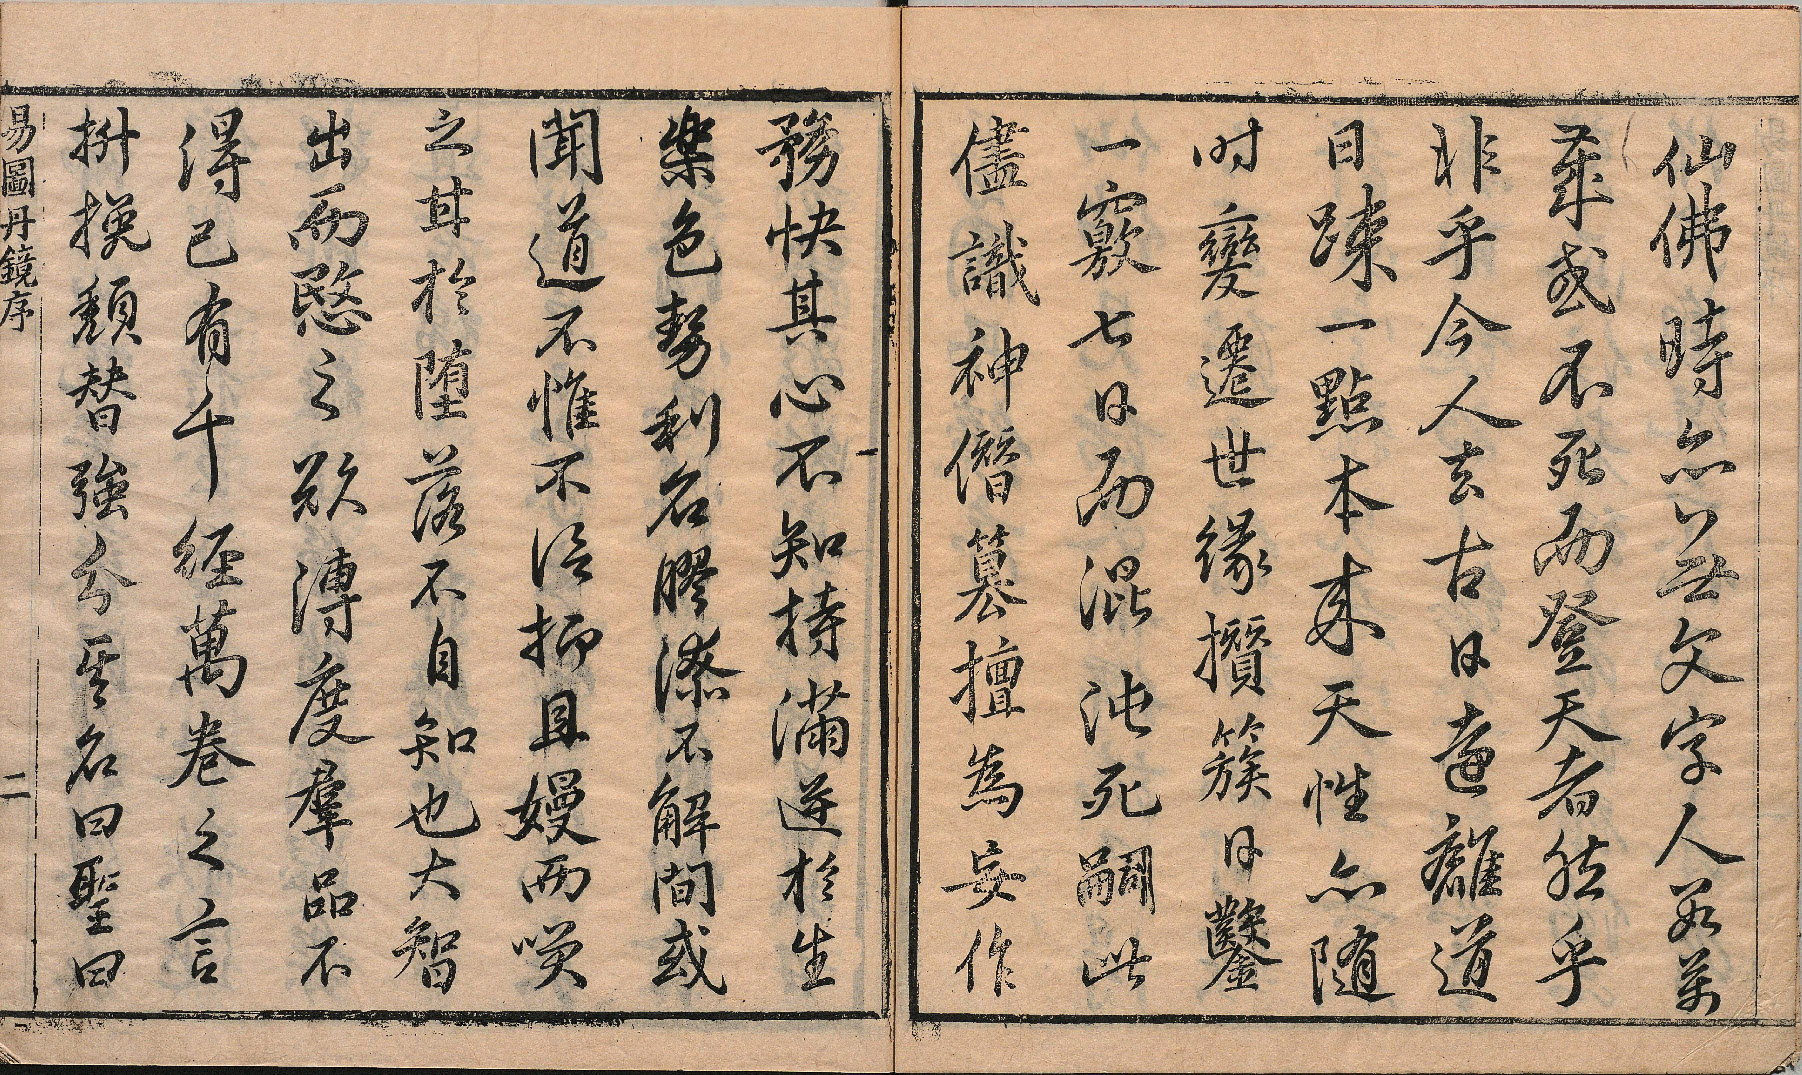 仙佛時亦無文字人如萬
華或不死而登天者然乎
非乎今人去古日遠離道
日踈一點本來天性亦随
时變遷世緣攢簇日鑿
一竅七日而混沌死嗣此
儘識神僭篡擅為妄作
務快其心不知持滿逆於生
樂色勢利名膠漆不解間或
聞道不惟不信抑且嫚而哭
之甘於墮落不自知也大智
出而愍之欲溥度羣品不
得已有千經萬卷之言
拚挽頹替強分其名曰聖曰
易圖丹鏡序
二